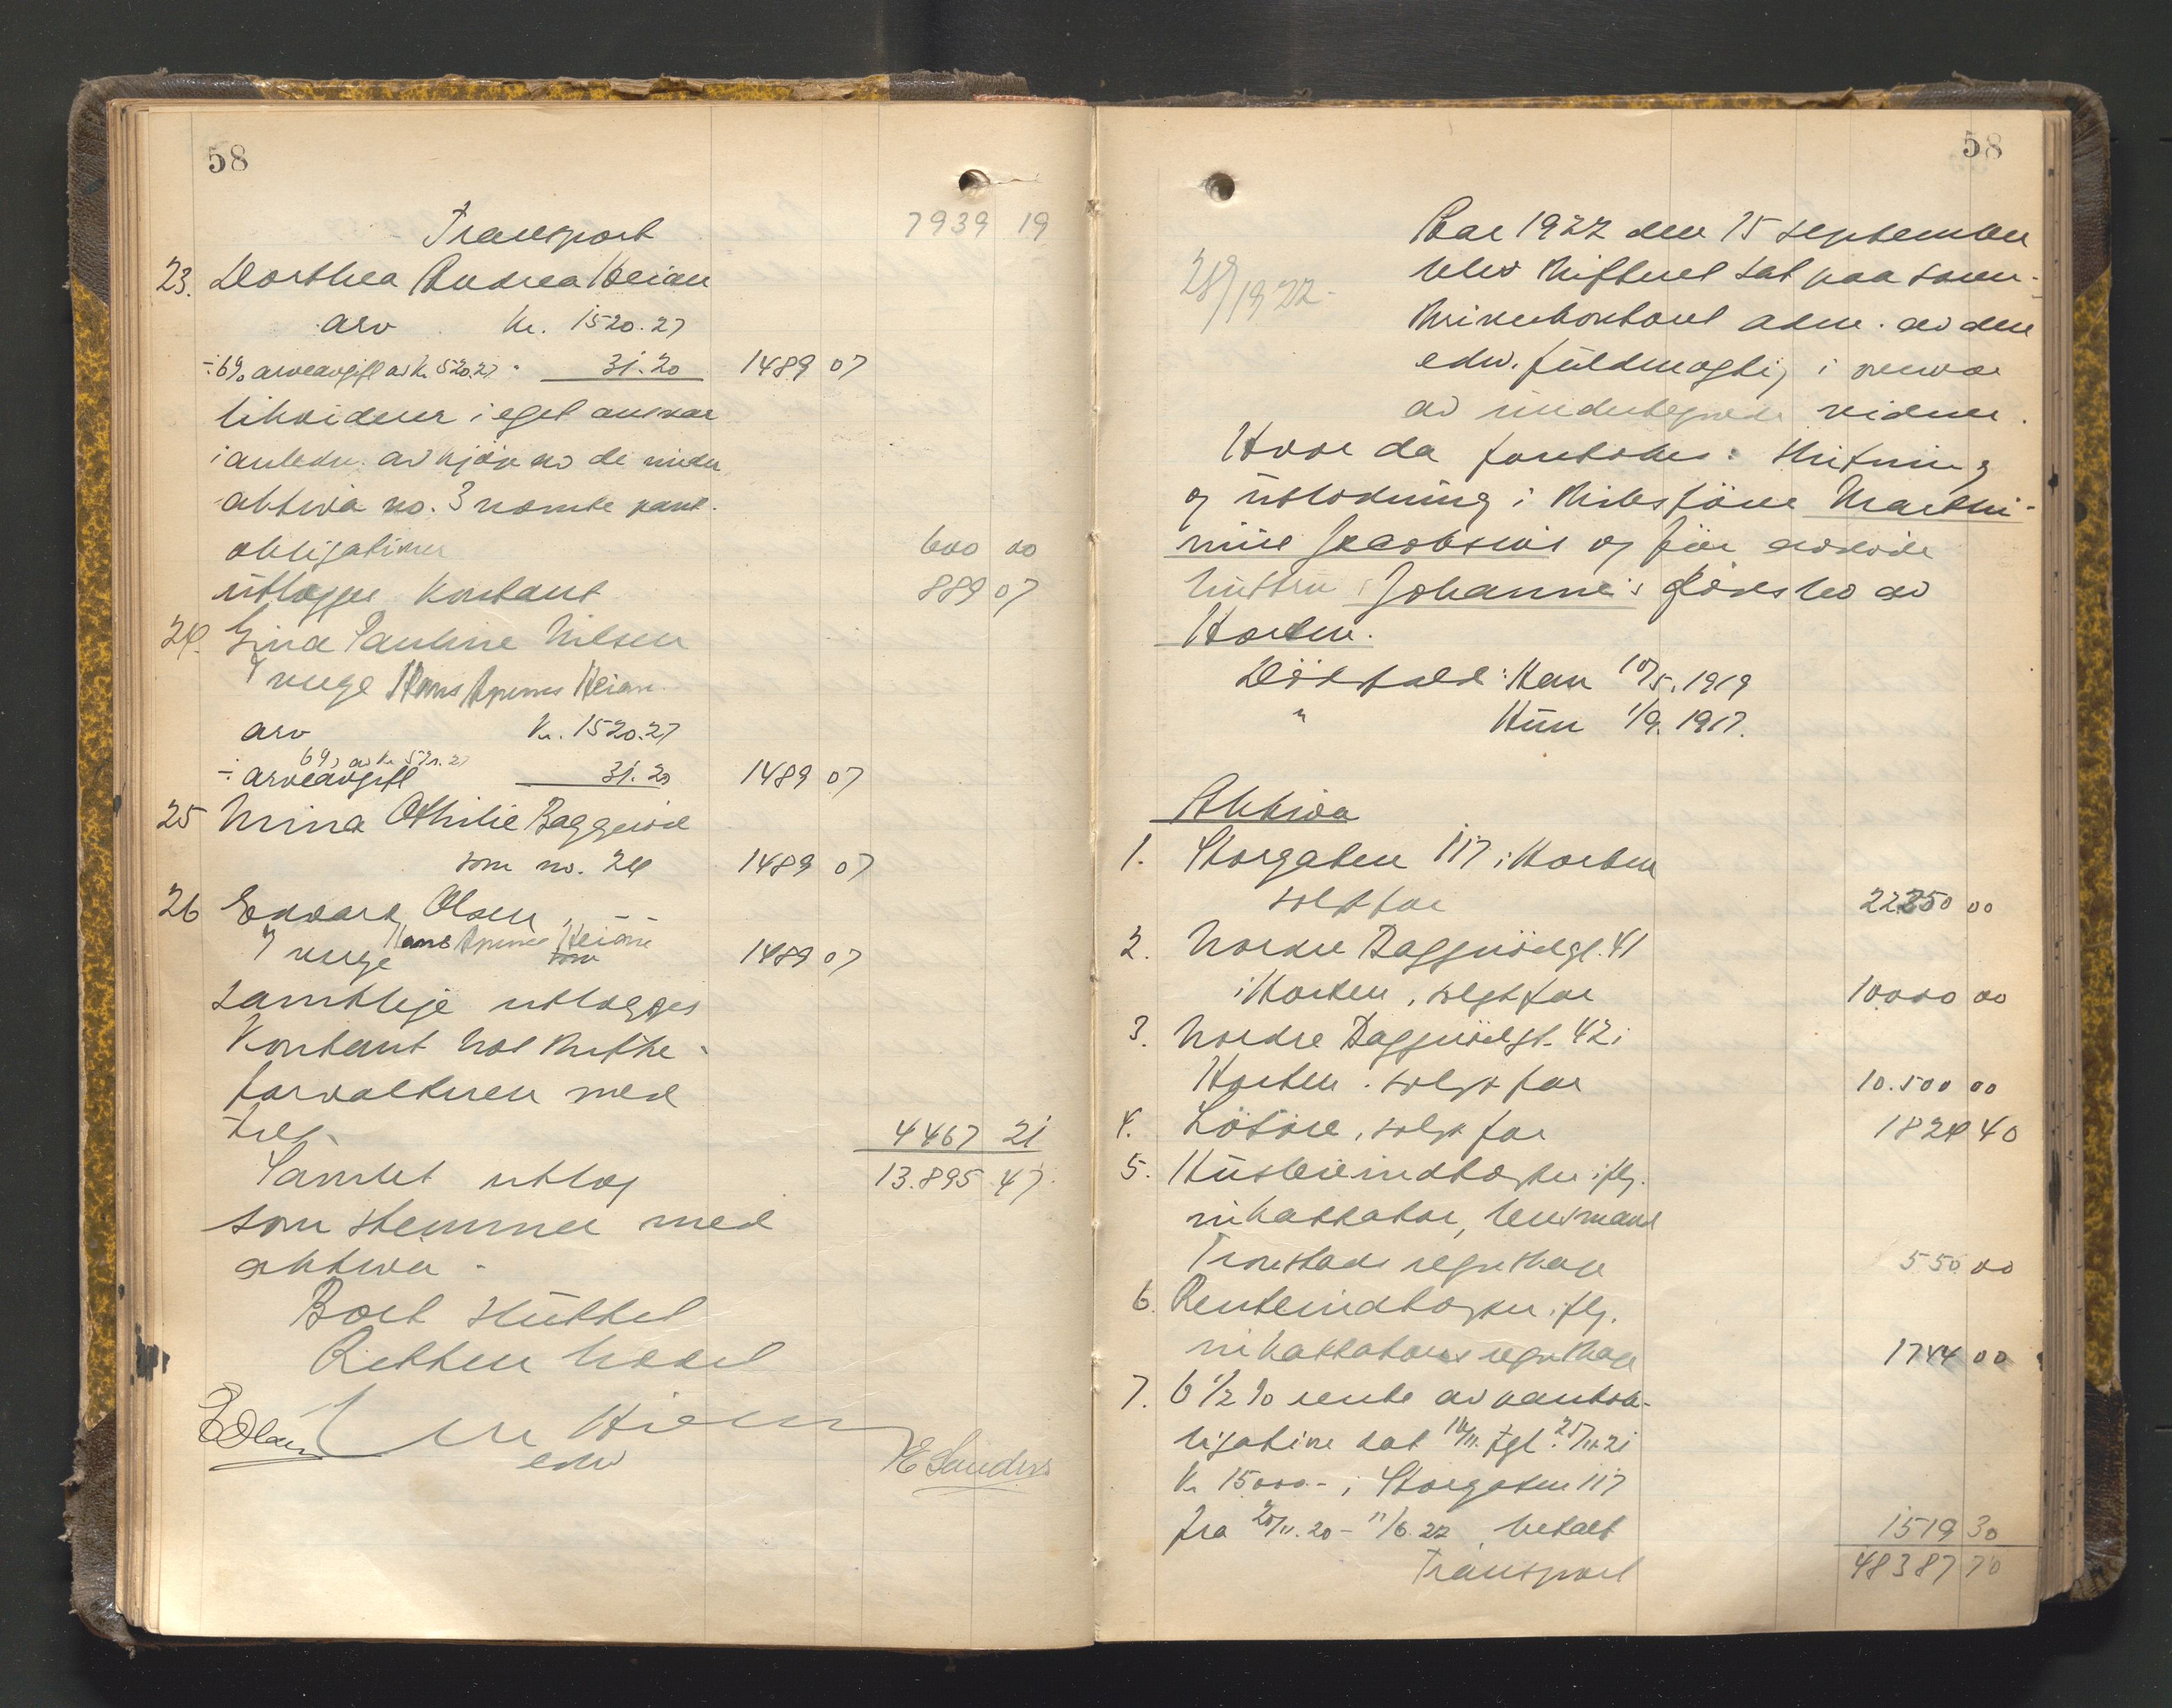 58
Transport 7939 19
23. Dorthea Andrea Heian
arv kr. 1520.27
÷ 6% arveavgift av kr. 520.27 " 31.20 1489 07
likviderer i eget ansvar
i anledn. av kjöp av de under
aktiva no. 3 nævnte pant-
obligationer 600 00
utlægges kontant 889 07
24. Gina Pauline Nilsen
v/ verge Hans Heian
arv kr. 1520.27
6% av kr. 520.27
÷ arveavgift 31.20 1489 07
25 Mina Othilie Baggerød
som no. 24 1489 07
26 Edvard Olsen,
v/ verge Hans Heian
som 1489 07
samtlige utlægges
kontant hos skifte-
forvalteren med
tils. 4467 21
Samlet utlæg 13.895 47
som stemmer med
aktiva.
Boet sluttet
Retten hævet
E Olsen
edv
E Sanders
58
Aar 1922 den 15 september
28/9 1922
blev skifteret sat paa soren-
skriverkontoret adm. av den
edsv. fuldmægtig i nærvær
av undertegnede vidner.
Hvor da foretokes: Slutning
og utlodning i skibsförer Marthi-
nius Jacobsens og för avdøde
hustru Johanne's fællesbo av
Horten.
Dödsfald: Han 10/5. 1919
" Hun 1/9. 1917.
Aktiva
1. Storgaten 117 i Horten
solgt for 22250 00
2. Nordre Baggerödgt. 41
i Horten, solgt for 10000 00
3. Nordre Baggerödgt. 42 i
Horten. solgt for 10.500 00
4. Lösöre, solgt for 1824 40
5. Husleieindtægter ifig.
inkassator, lensmand
Tronstads regnskap 550 00
6. Renteindtægter ifig.
inkassators regnskap 1744 00
7. 6 1/2 % rente av pantob-
ligation dat 14/11. tgl. 25/11.21
kr 15000.- i Storgaten 117
fra 20/11.20 - 11/6.22 betalt 1519 30
Transport 48387 70